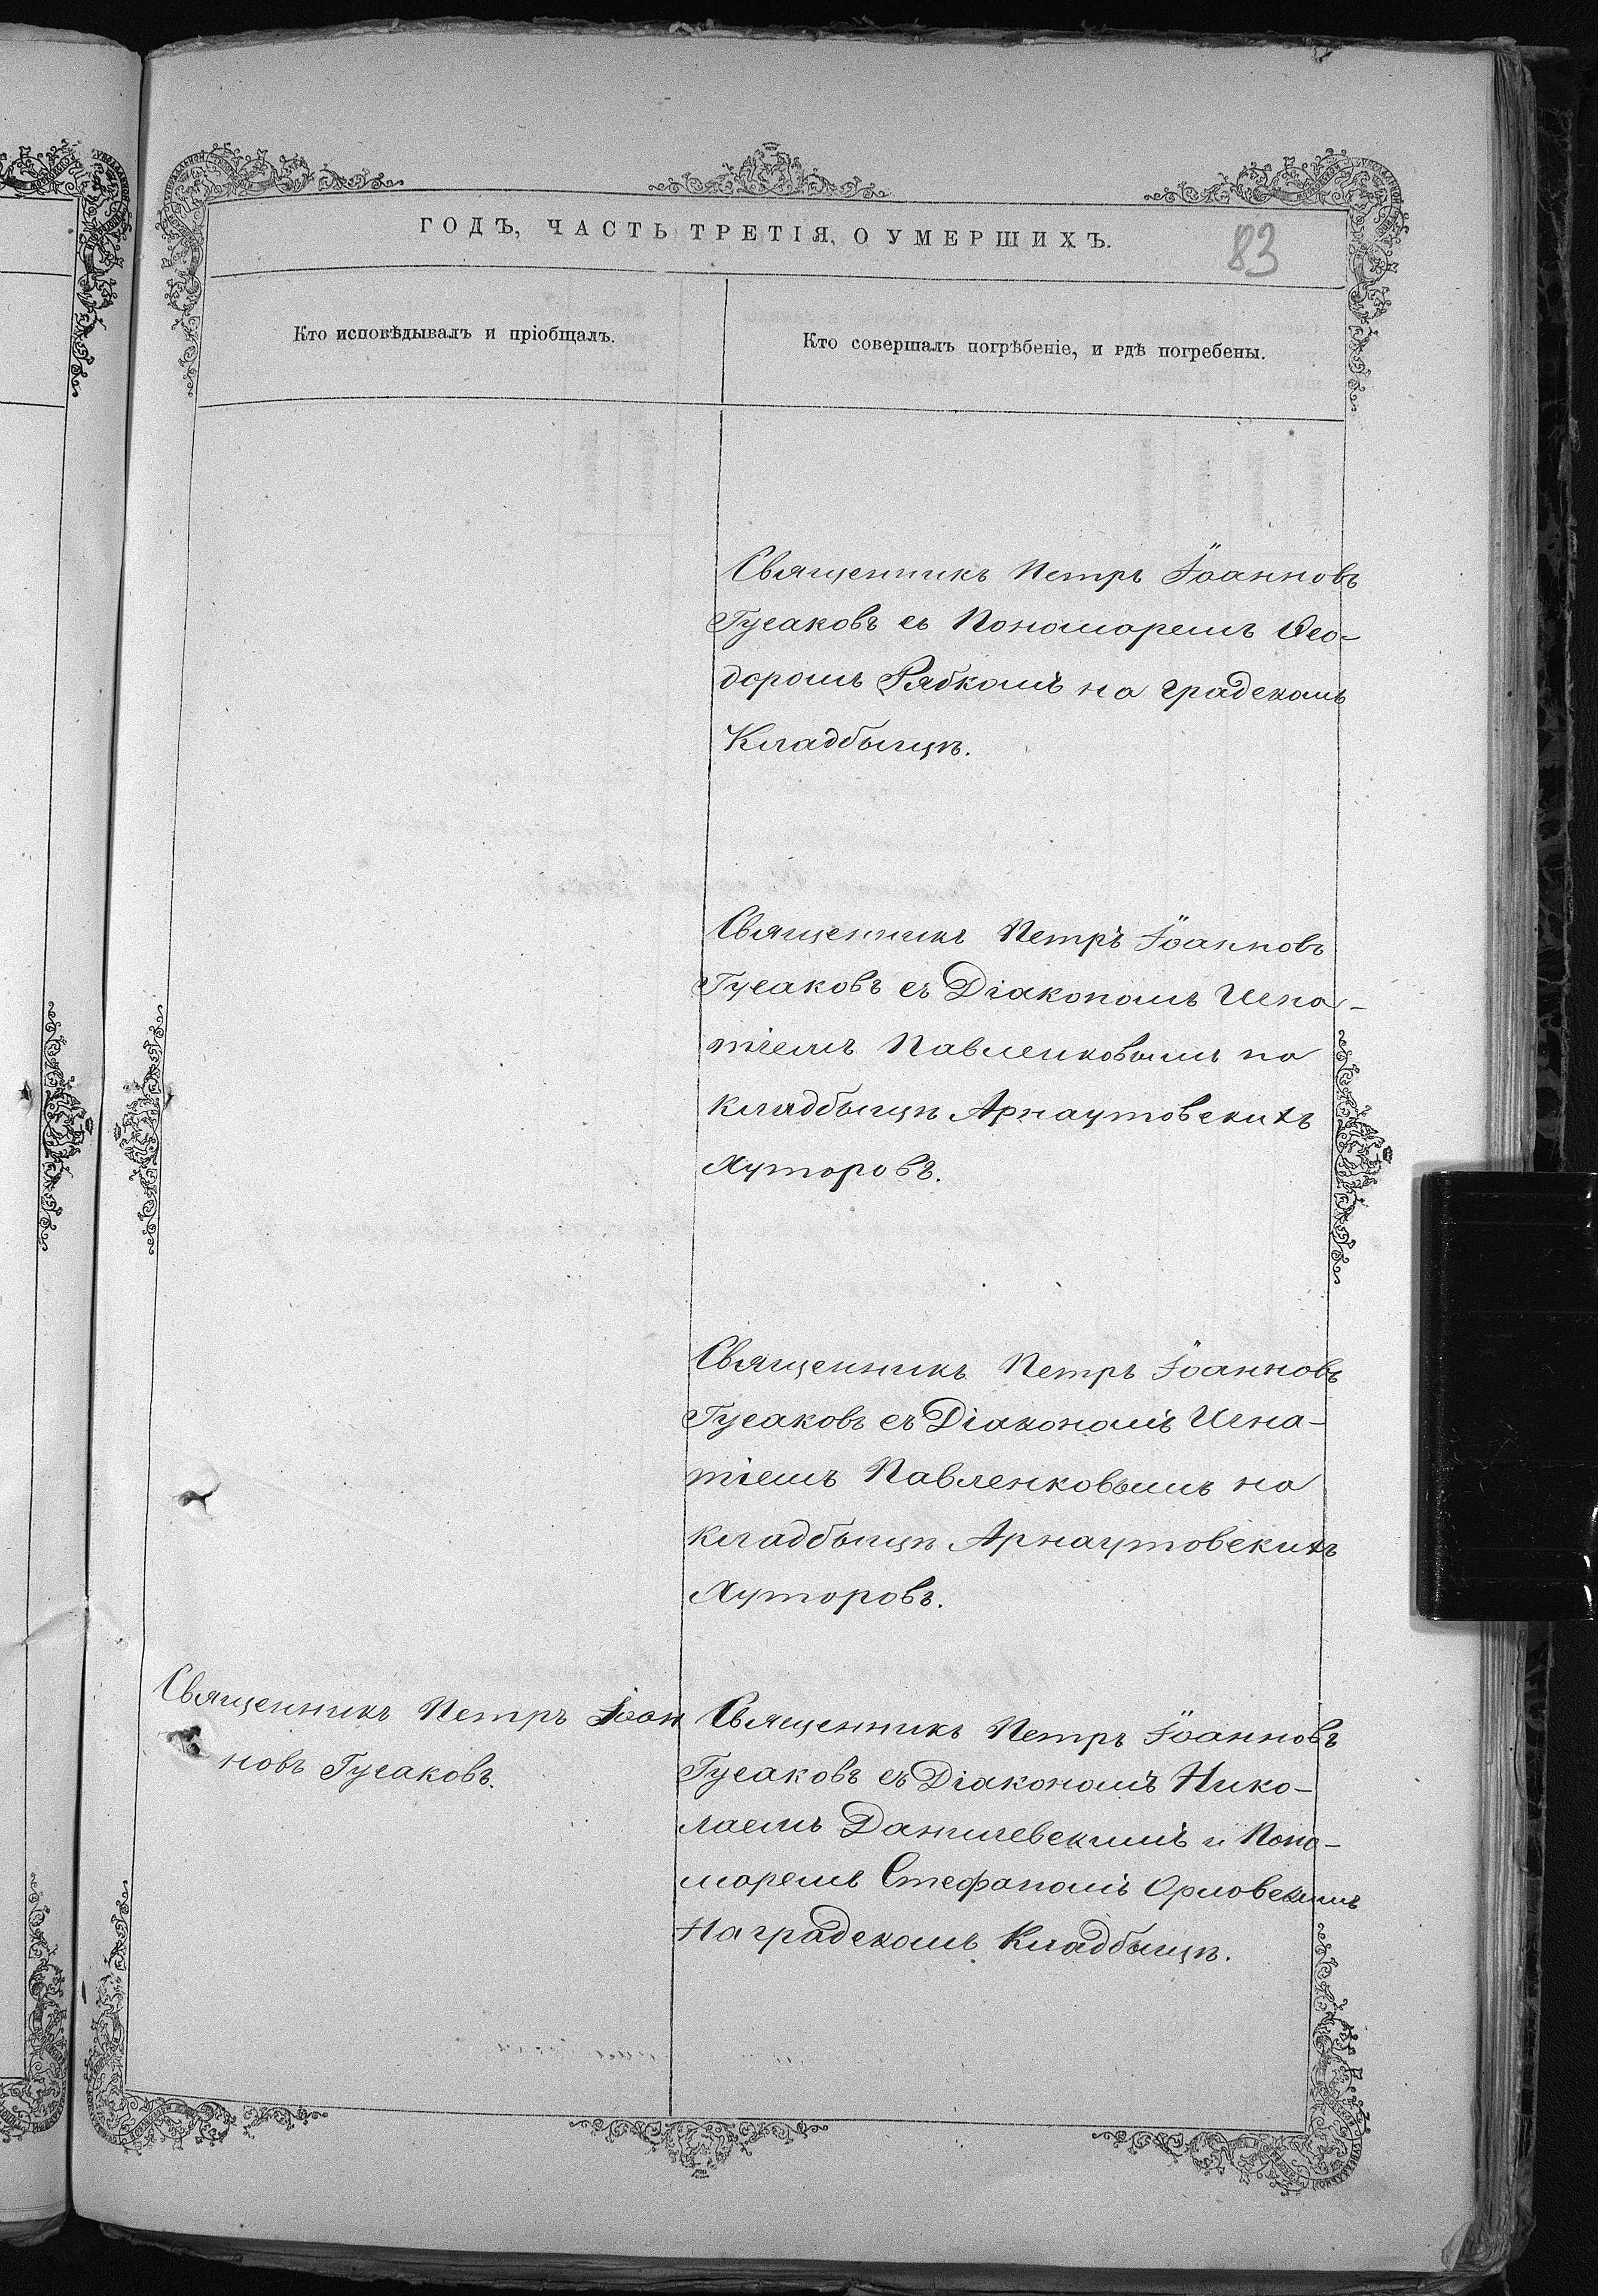 ГОДЪ, ЧАСТЬ ТРЕТІЯ, О УМЕРШИХЪ.
83
Кто исповѣдывалъ и пріобщалъ.
Кто совершалъ погрѣбеніе, и гдѣ погребены.
Священникъ Петръ Іоанновъ
Гусаковъ съ Пономоремъ Ѳео-
доромъ Рябкомъ на градскомъ
Кладбыщѣ.
Священникъ Петръ Іоанновъ
Гусаковъ съ Діакономъ Игна-
тіемъ Павленковымъ на
кладбыщѣ Арнаутовскихъ
Хуторовъ.
Священникъ Петръ Іоанновъ
Гусаковъ съ Діакономъ Игна-
тіемъ Павленковымъ на
кладбыщѣ Арнаутовскихъ
Хуторовъ.
Священникъ Петръ Іоан
новъ Гусаковъ.
Священникъ Петръ Іоанновъ
Гусаковъ съ Діакономъ Нико-
лаемъ Данилевскимъ и Поно-
моремъ Стефаномъ Орловскимъ
На градскомъ Кладбыщѣ.